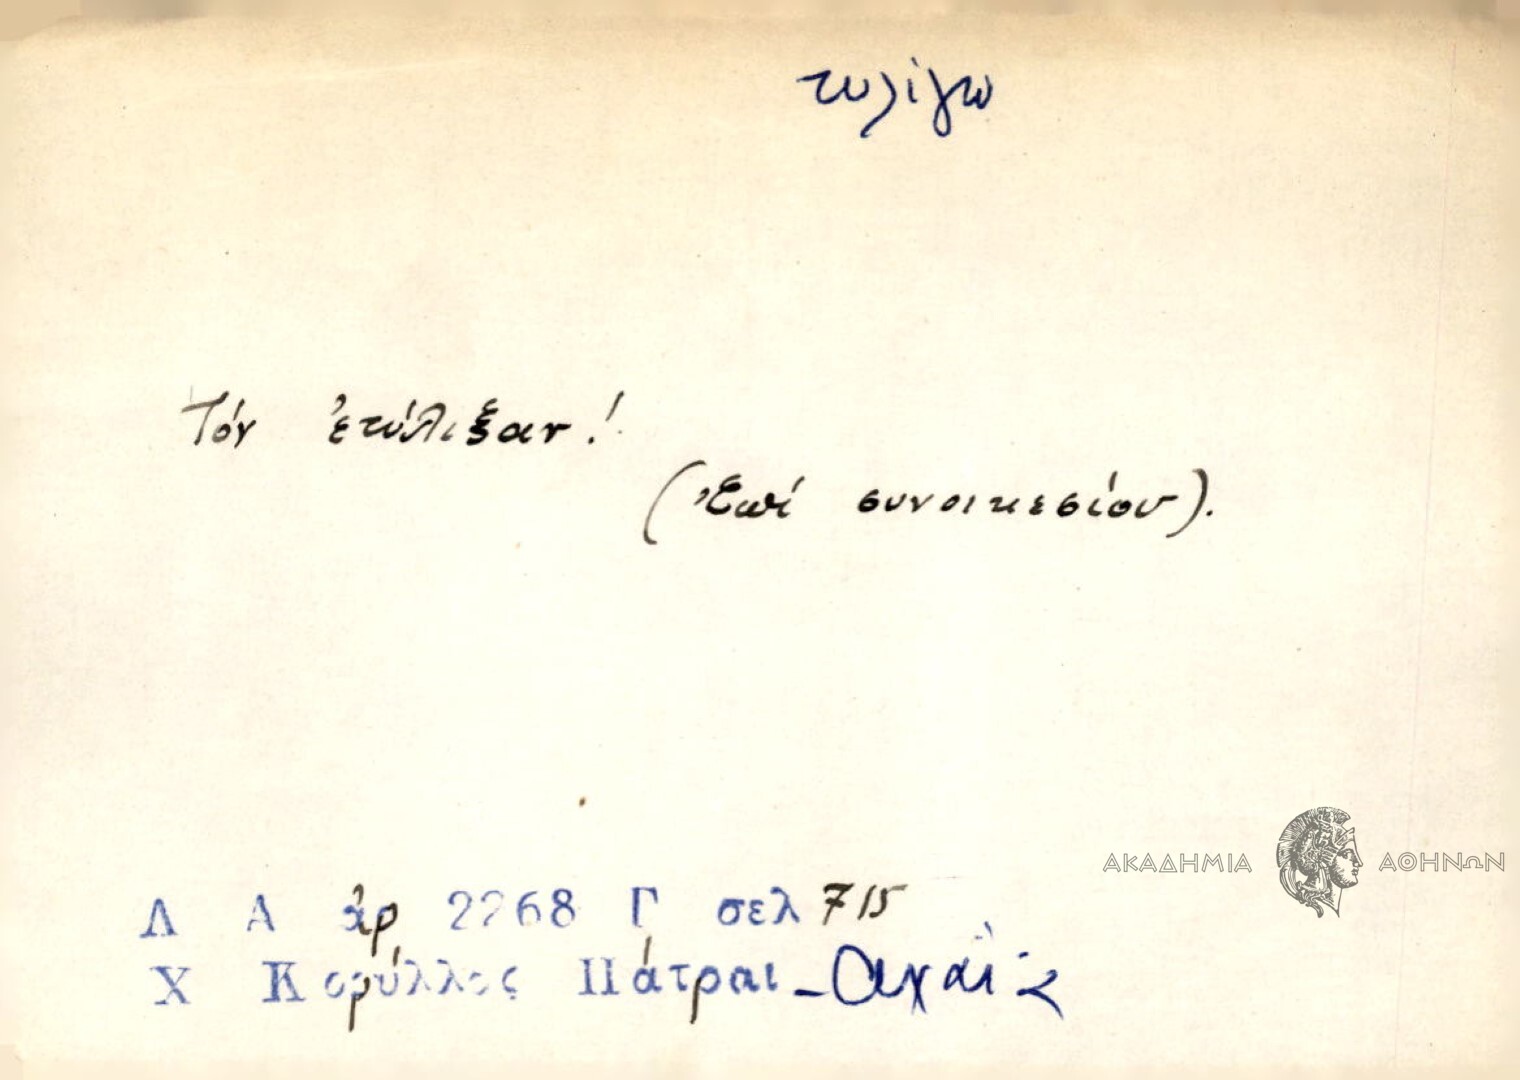 τυλίγω
Τόν ἐτύλιξαν!
(Ἐπί συνοικεσίου).
ΑΚΑΔΗΜΙΑ ΑΘΗΝΩΝ
Λ Α ἀρ 2268 Γ σελ 715
Χ Κορύλλος Πάτραι -